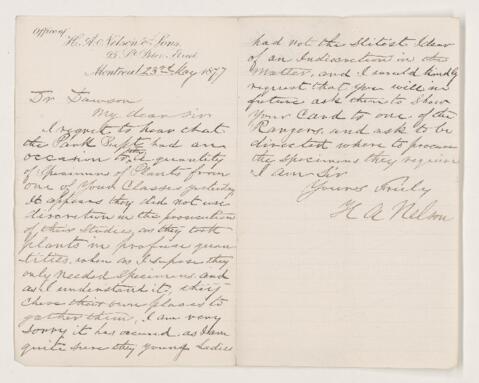 Office of
H. A. Nelson & Sons,
St. Peter Street
Montreal 23rd May 1877
Dr Dawson
My dear Sir
I regret to hear that
the Park Supt. had an
occasion to quantity
of Specimens of Plants from
one of Your Classes yesterday
It appears they did not use
discretion in the prosecution
of their Studies, as they took
plants in profuse quan
tities, when as I supose they
only needed Specimens. and
as I understand it, they
chose their own places to
gather them, I am very
sorry it has occured. as I am
quite sure they young Ladies
had not the slitest Idea
of an Indiscretion in the
Matter, and I would kindly
request that you will in
future ask them to show
Your Card to one of the
Rangers, and ask to be
directed where to procure
the specimens they require
I am Sir
Yours truly
H A Nelson